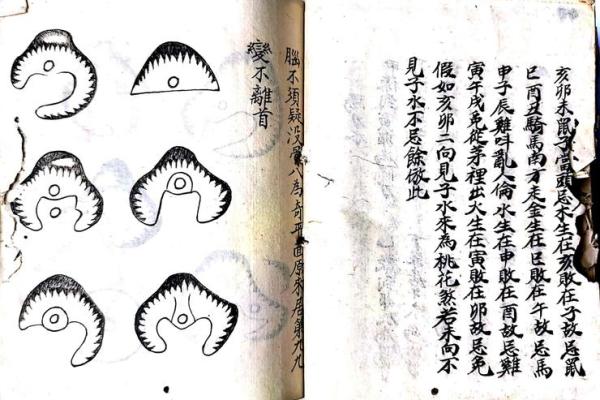 亥卯未鼠子當頭忌木生在亥敗在子故忌鼠
巳酉丑騎馬南方走金生在巳敗在午故忌馬
申子辰雞叫亂人倫水生在申敗在酉故忌雞
寅午戌兔從茅裡出火生在寅敗在卯故忌兔
假如亥卯二向見子水來為桃花煞若未向不
見子水不忌餘倣此
腦不須疑沒骨八為奇平面原來居第九九
變不離首